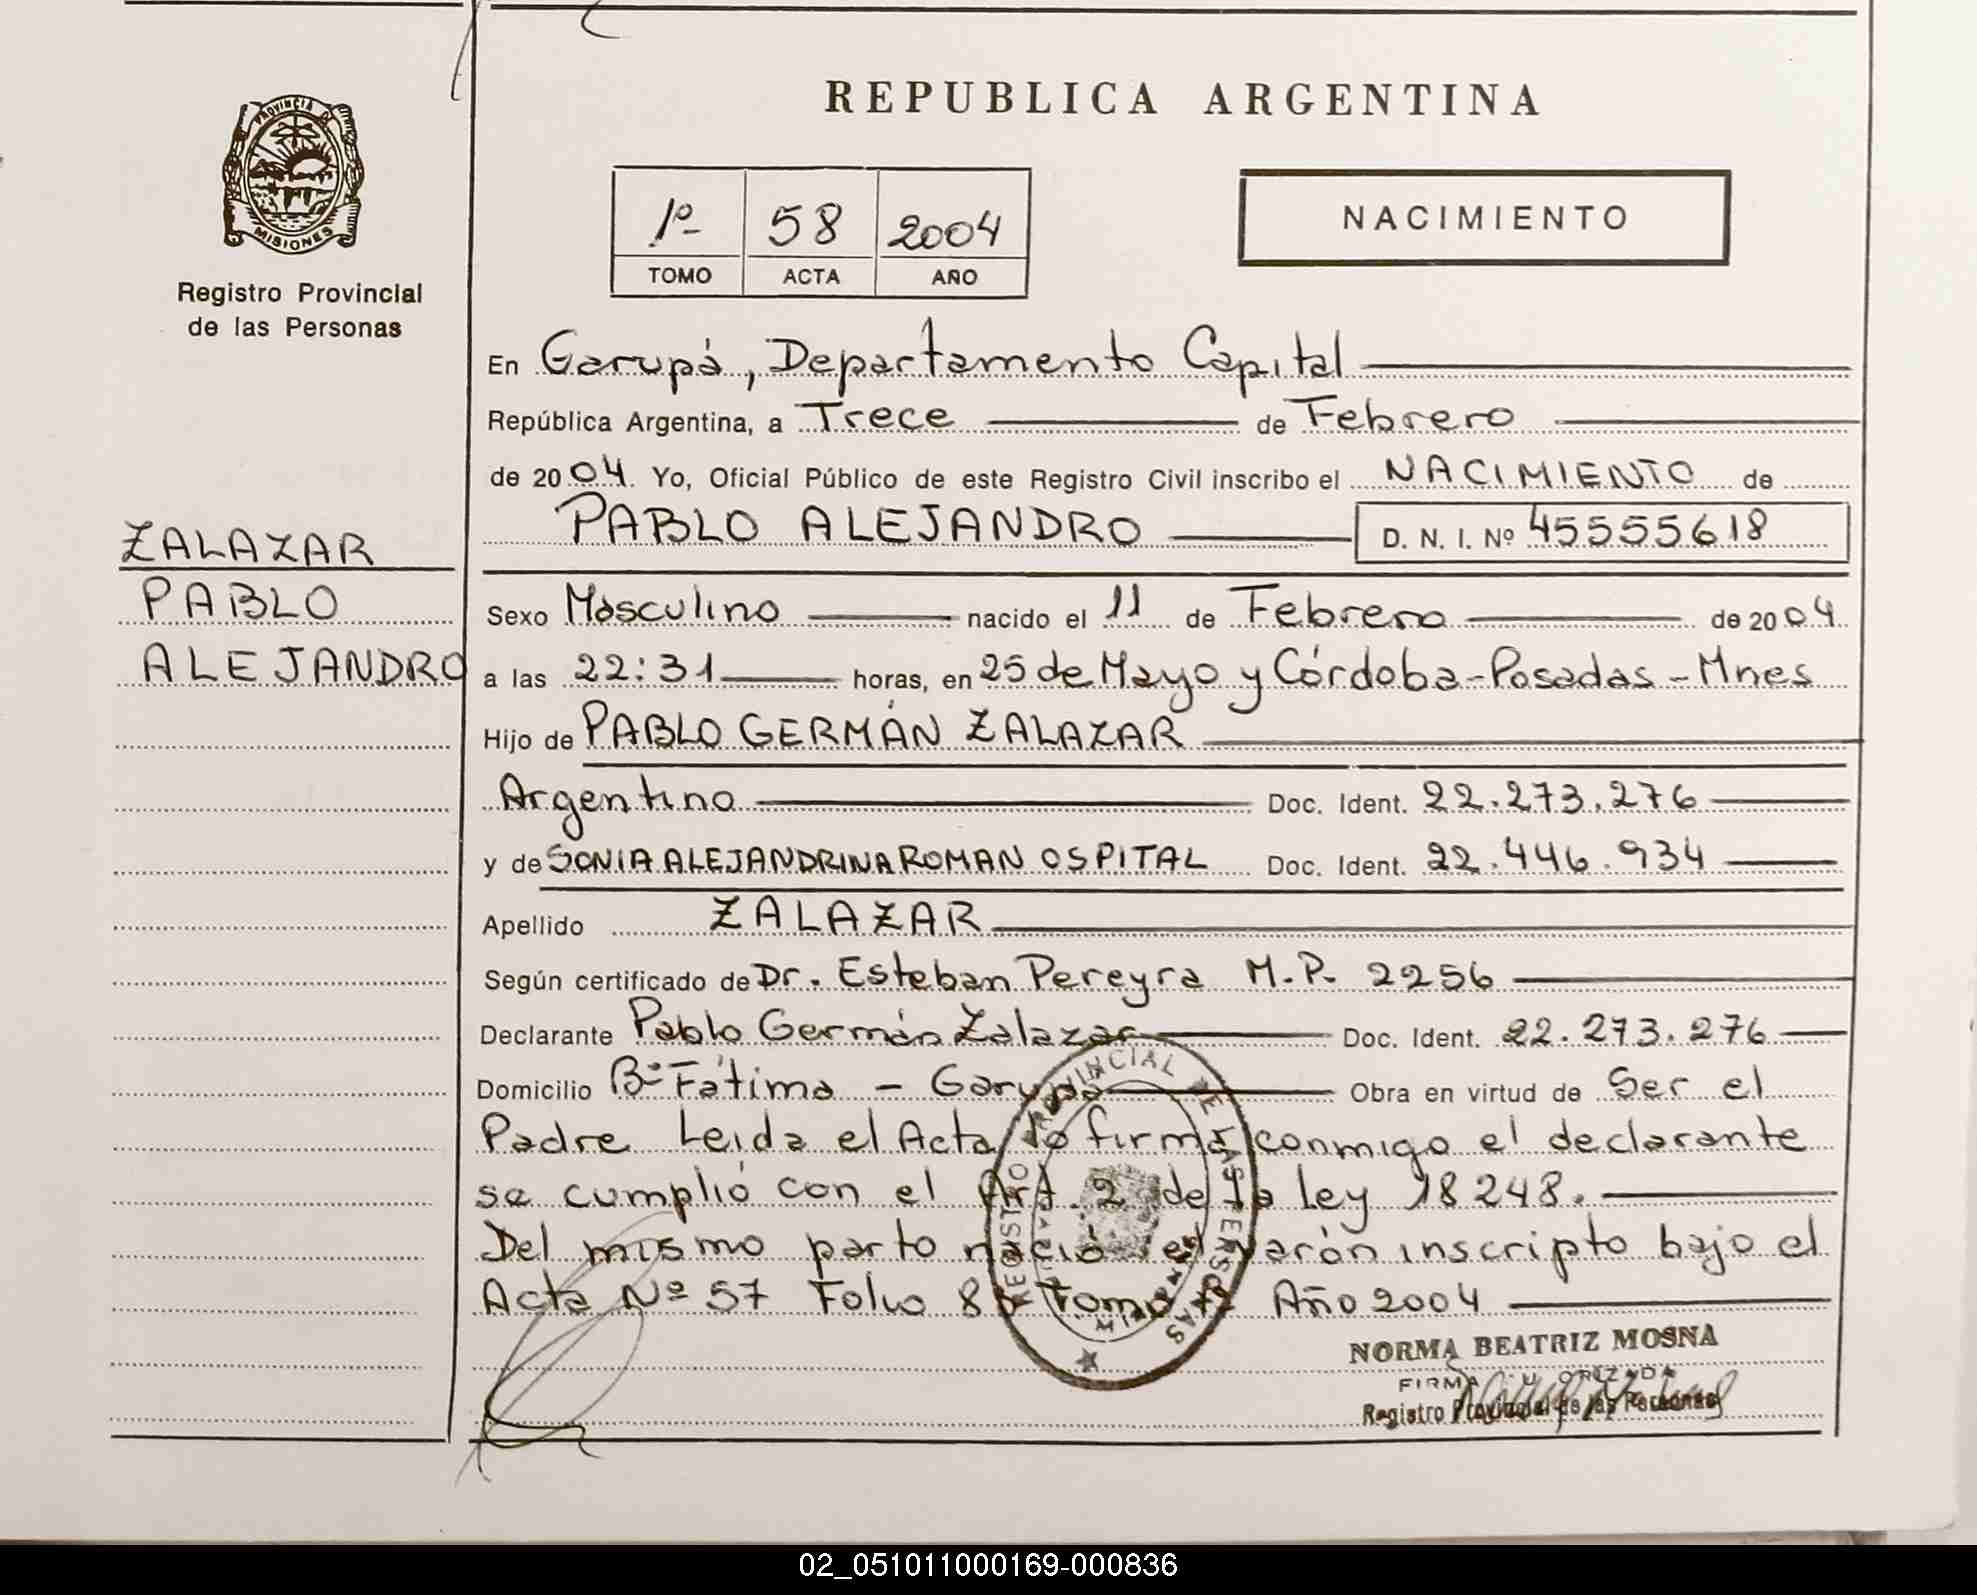 REPUBLICA ARGENTINA
PROVINCIA DE
MISIONES
Registro Provincial
de las Personas
1º 58 2004
TOMO ACTA AÑO
NACIMIENTO
En Garupá, Departamento Capital
República Argentina, a Trece de Febrero
de 2004. Yo, Oficial Público de este Registro Civil inscribo el NACIMIENTO de
PABLO ALEJANDRO D. N. I. Nº 45555618
ZALAZAR
PABLO
ALEJANDRO
Sexo Masculino nacido el 11 de Febrero de 2004
a las 22:31 horas, en 25 de Mayo y Córdoba-Posadas-Mnes
Hijo de PABLO GERMÁN ZALAZAR
Argentino Doc. Ident. 22.273.276
y de SONIA ALEJANDRINA ROMAN OSPITAL Doc. Ident. 22.446.934
Apellido ZALAZAR
Según certificado de Dr. Esteban Pereyra M.P. 2256
Declarante Pablo Germán Zalazar Doc. Ident. 22.273.276
Domicilio Bº Fátima - Garupá Obra en virtud de Ser el
Padre Leida el Acta lo firma conmigo el declarante
se cumplió con el Art. 2 de la ley 18248.
Del mismo parto nació el varón inscripto bajo el
Acta Nº 57 Folio Tomo Año 2004
REGISTRO PROVINCIAL DE LAS PERSONAS
NORMA BEATRIZ MOSNA
FIRMA AUTORIZADA
Registro Provincial de las Personas
02_051011000169-000836